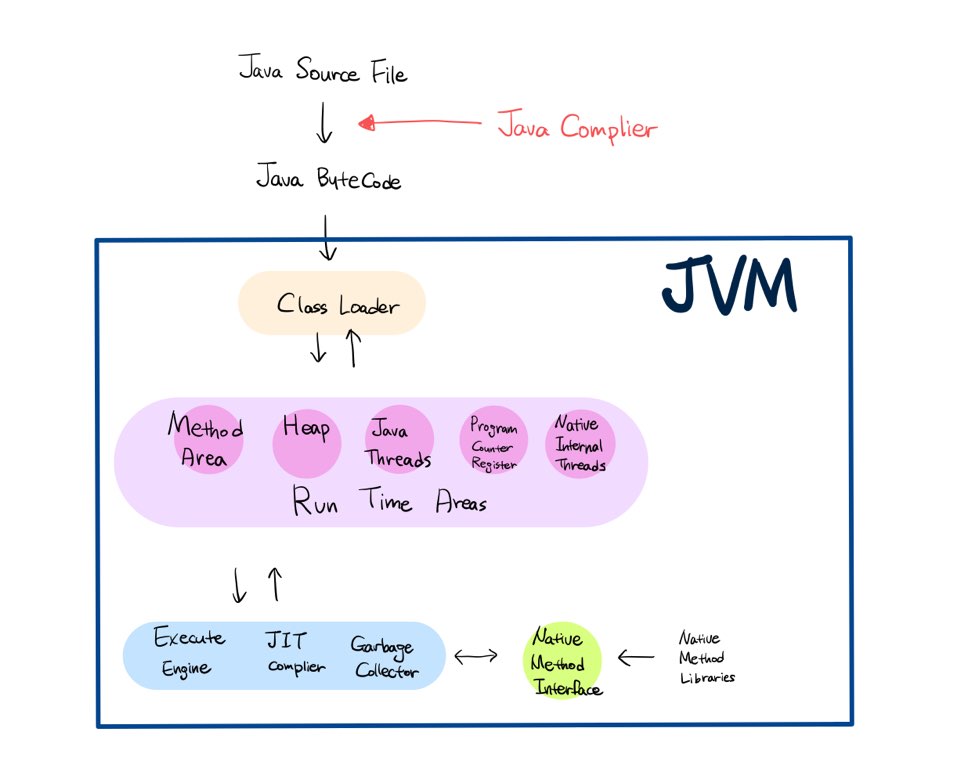 Java Source File
Java Complier
Java ByteCode
JVM
Class Loader
Method
Area
Heap
Java
Threads
Program
Counter
Register
Native
Internal
Threads
Run Time Areas
Execute
Engine
JIT
Complier
Garbage
Collector
Native
Method
Interface
Native
Method
Libraries